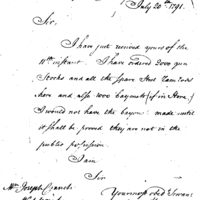 July 20th 1791.
Sir.
I have just received yours of the
11th instant. I have ordered 2000 gun
Stocks and all the spare Arms
here and also 100 bayonets (if in Store)
I would not have the bayonets made until
it shall be proved they are not in the
public possession.
I am
Sir
Mr. Joseph
Your most obed Servant